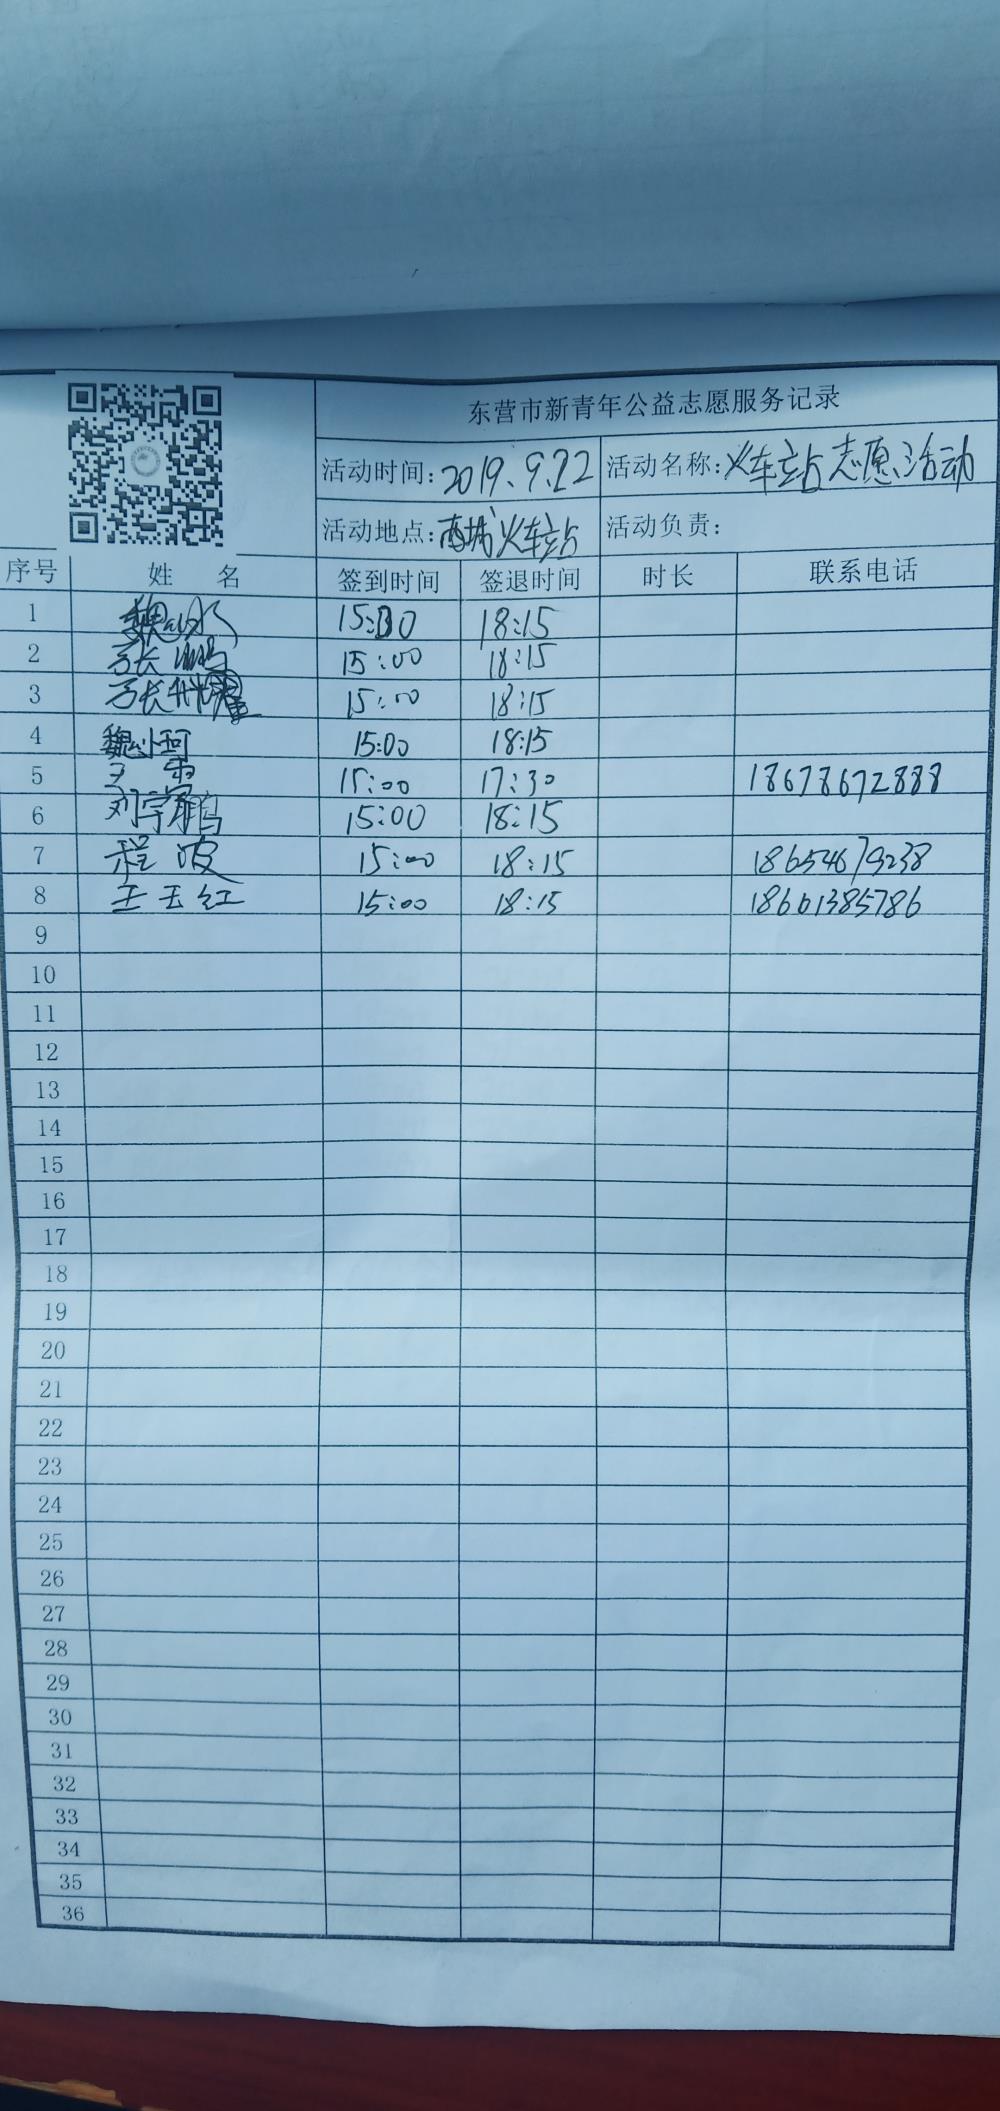 东营市新青年公益志愿服务记录
活动时间：2019.9.22 活动名称：火车站志愿活动
活动地点：西城火车站 活动负责：
序号 姓 名 签到时间 签退时间 时长 联系电话
1 魏 15:00 18:15
2 张鹏 15:00 18:15
3 张 15:00 18:15
4 魏小珂 15:00 18:15
5 15:00 17:30 18678672888
6 刘宇鹏 15:00 18:15
7 程波 15:00 18:15 18654679238
8 王玉红 15:00 18:15 18661385786
9
10
11
12
13
14
15
16
17
18
19
20
21
22
23
24
25
26
27
28
29
30
31
32
33
34
35
36